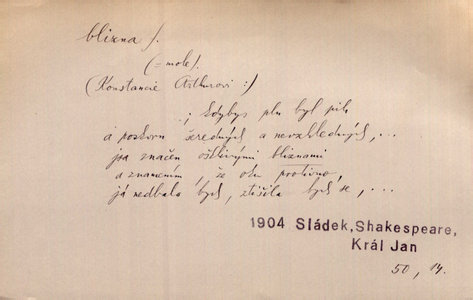 blizna f.
(= mole).
(Konstancie Arthurovi :)
; kdybys pln byl pih
a poskvrn šeredných a nevzhledných, ...
jsa značen ošklivými bliznami
a znamením, že oku protivno,
já nedbala bych, ztišila bych se, ...
1904 Sládek, Shakespeare,
Král Jan
50, 14.